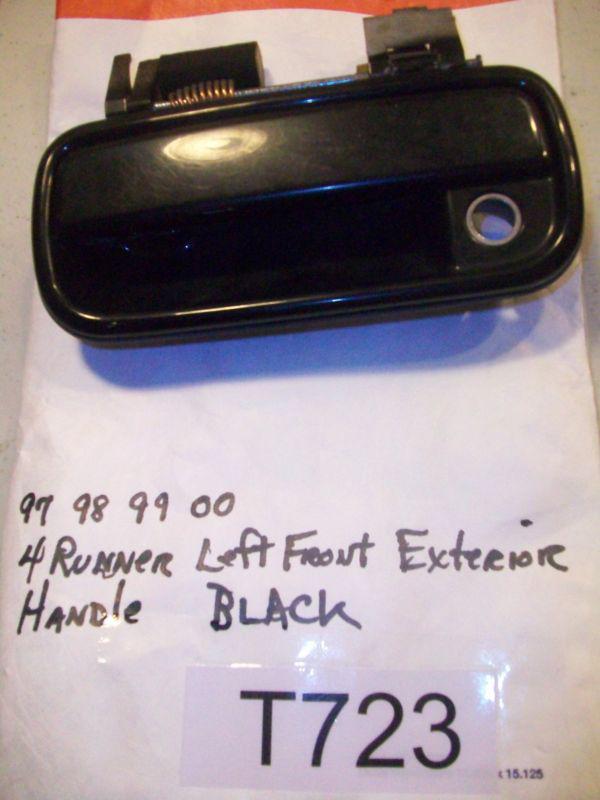 97 98 99 00
4 Runner Left Front Exterior
Handle BLACK
T723
x 15.125